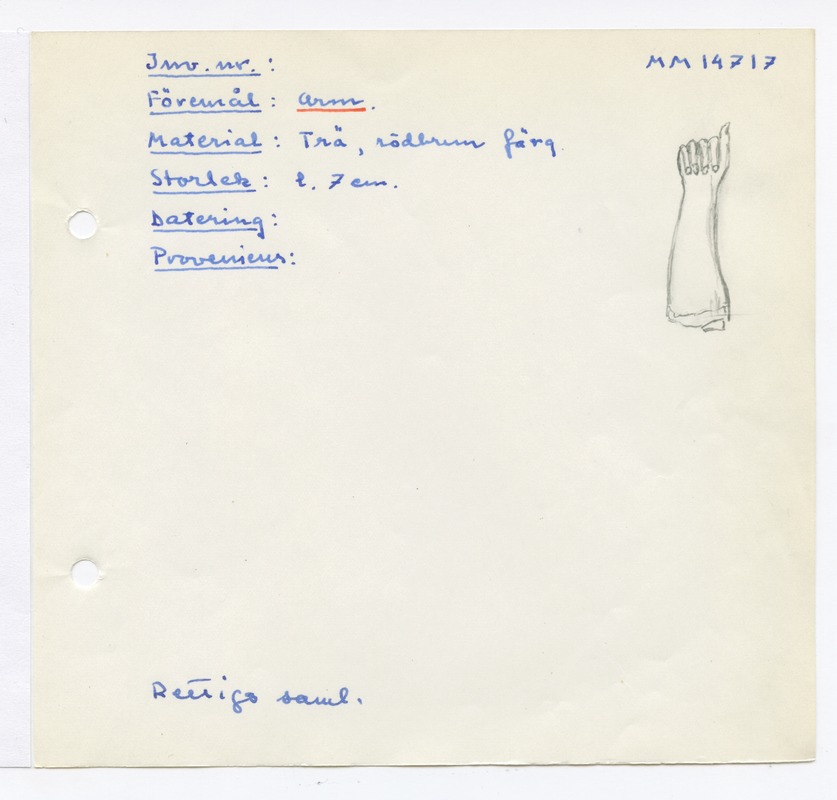 Inv. nr.: MM 14717
Föremål: Arm.
Material: Trä, rödbrun färg.
Storlek: l. 7 cm.
Datering:
Proveniens:
Rettigs saml.